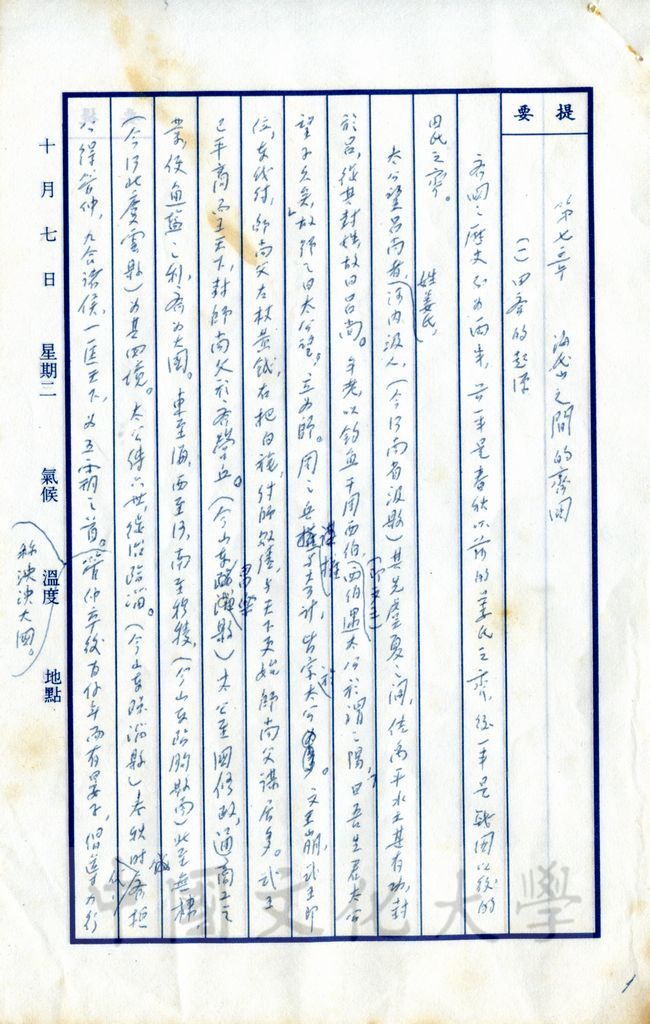 提要
第七章 海岱之間的齊國
(一)田齊的起源
齊國之歷史分為兩半,前一半是春秋以前的姜氏之齊,後一半是戰國以後的
田氏之齊。
太公望呂尚者,姓姜氏,河內汲人,(今河南省汲縣)其先虞夏之間,佐禹平水土甚有功,封
於呂,從其封姓故曰呂尚。年老,以釣魚干周西伯,(即文王)西伯遇太公於渭之陽,曰吾先君太公
望子久矣,故號之曰太公望。立為師。周之兵權與大計,皆宗太公 文王崩,武王即
位,東伐紂,師尚父左杖黃鉞,右把白旄,紂師敗績,與天下更始,師尚父謀居多。武王
已平商而王天下,封師尚父於齊營丘。(今山東 昌樂縣)太公至國修政,通商工之
業,便魚鹽之利,齊為大國。東至海,西至河,南至穆稜,(今山東臨朐縣南)北至無棣
(今河北慶雲縣)為其四境。太公傳六世,徙治臨淄。(今山東臨淄縣)春秋時齊桓
公得管仲,九合諸侯,一匡天下,為五霸之首。管仲卒後百什年而有晏子,倡導力行
稱泱泱大國。
十月七日 星期二 氣候 溫度 地點
中國文化大學
1